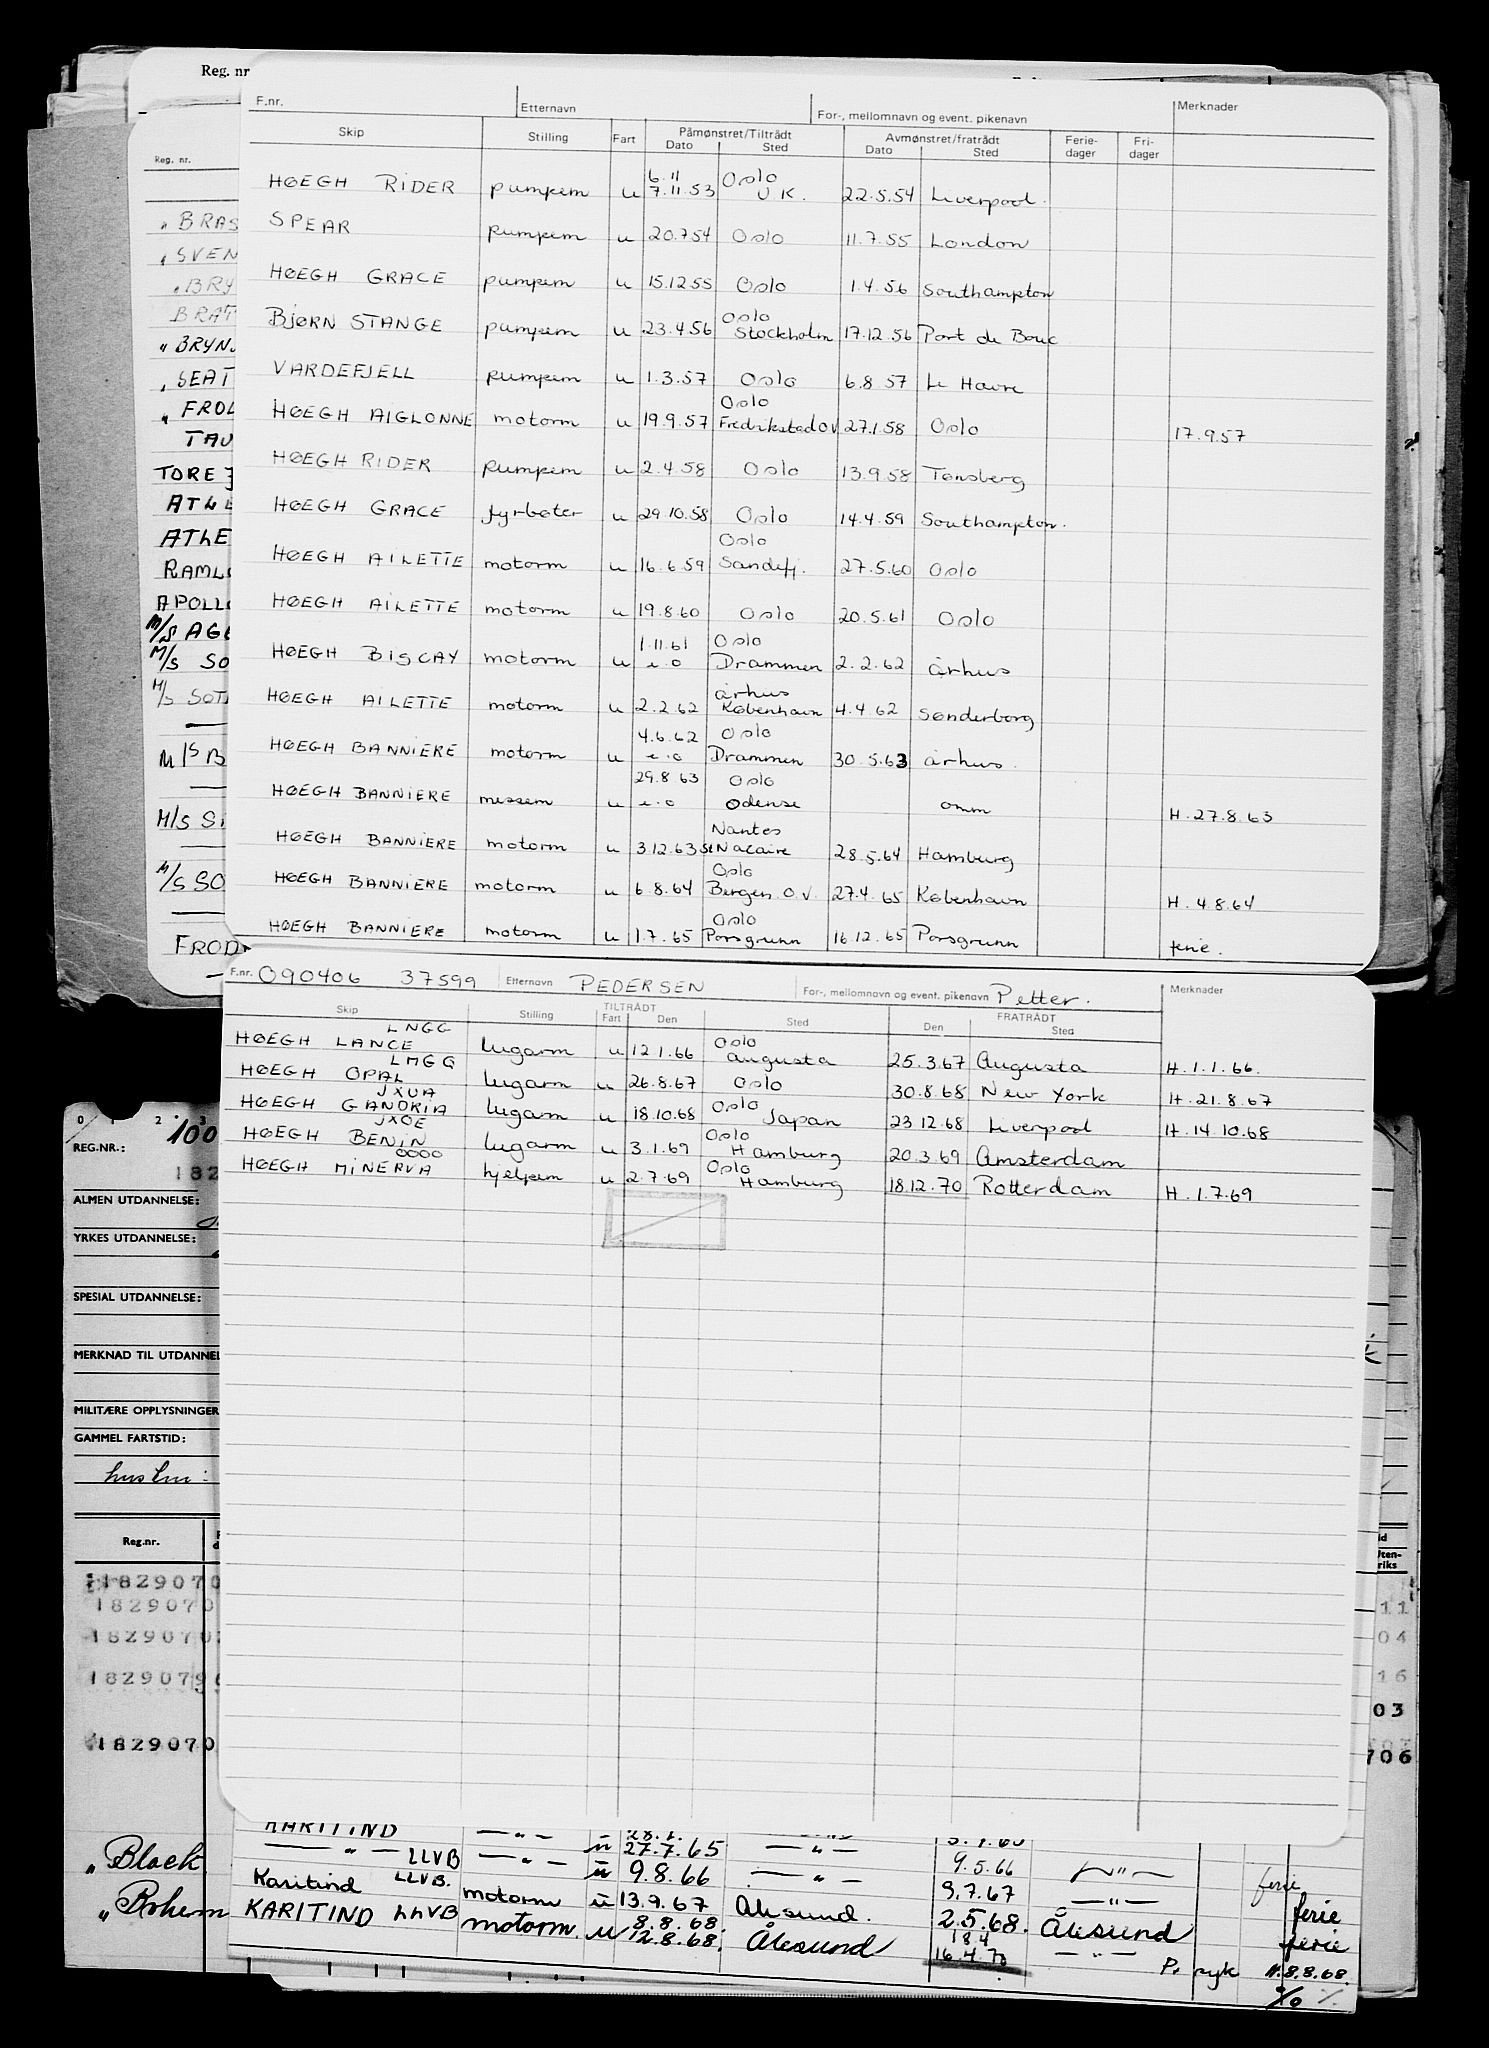 Reg. nr
Reg. nr.
F.nr. Etternavn For-, mellomnavn og event. pikenavn Merknader
Skip Stilling Fart Påmønstret/Tiltrådt Avmønstret/fratrådt Ferie- Fri-
Dato Sted Dato Sted dager dager
6.11 Oslo
HØEGH RIDER pumpem u 7.11.53 U K. 22.5.54 Liverpool.
SPEAR pumpem u 20.7.54 Oslo 11.7.55 London
HØEGH GRACE pumpem u 15.12.55 Oslo 1.4.56 Southampton
Oslo
BJØRN STANGE pumpem u 23.4.56 Stockholm 17.12.56 Port de Bouc
VARDEFJELL pumpem u 1.3.57 Oslo 6.8.57 Le Havre
Oslo
HØEGH AIGLONNE motorm u 19.9.57 Fredrikstad OV 27.1.58 Oslo 17.9.57
HØEGH RIDER pumpem u 2.4.58 Oslo 13.9.58 Tønsberg
HØEGH GRACE fyrbøter u 29.10.58 Oslo 14.4.59 Southampton.
Oslo
HØEGH AILETTE motorm u 16.6.59 Sandefj. 27.5.60 Oslo
HØEGH AILETTE motorm u 19.8.60 Oslo 20.5.61 Oslo
1.11.61 Oslo
HØEGH BISCAY motorm u e.o Drammen 2.2.62 århus
århus
HØEGH AILETTE motorm u 2.2.62 København 4.4.62 Sønderborg
4.6.62 Oslo
HØEGH BANNIERE motorm u e.o Drammen 30.5.63 århus.
29.8.63 Oslo
HØEGH BANNIERE messem u e.o Odense omm H.27.8.63
Nantes
HØEGH BANNIERE motorm u 3.12.63 St Nacaire 28.5.64 Hamburg
Oslo
HØEGH BANNIERE motorm u 6.8.64 Bergen O.V. 27.4.65 København H.4.8.64
Oslo
HØEGH BANNIERE motorm u 1.7.65 Porsgrunn 16.12.65 Porsgrunn ferie.
„BRAS
„SVEN
„BRY
BRAT
„BRYN
„SEAT
„FROL
TAU
TORE J
ATLE
ATLE
RAML
APOLL
M/S AGE
M/S SO
M/S SOT
M/S B
M/S S
M/S SO
FROD
F.nr. 090406 37599 Etternavn PEDERSEN For-, mellomnavn og event. pikenavn Petter. Merknader
Skip Stilling TILTRÅDT FRATRÅDT
Fart Den Sted Den Sted
LNGG
HØEGH LANCE lugarm u 12.1.66 Oslo Augusta 25.3.67 Augusta H.1.1.66.
LMGG
HØEGH OPAL lugarm u 26.8.67 Oslo 30.8.68 New York H.21.8.67
JXUA
HØEGH GANDRIA lugarm u 18.10.68 Oslo Japan 23.12.68 Liverpool H.14.10.68
JXOE
HØEGH BENIN lugarm u 3.1.69 Oslo Hamburg 20.3.69 Amsterdam
OOOO
HØEGH MINERVA hjelpem u 2.7.69 Oslo Hamburg 18.12.70 Rotterdam H.1.7.69
REG.NR.: 100
182
ALMEN UTDANNELSE:
YRKES UTDANNELSE:
SPESIAL UTDANNELSE:
MERKNAD TIL UTDANNEL
MILITÆRE OPPLYSNINGER
GAMMEL FARTSTID:
hustru:
Reg.nr.
Uten-
riks
1829070
1829070 11
1829070 04
1829079 16
03
1829070 706
KARITIND
— „ — LLVB — „ — u 27.7.65 — „ —
Karitind LLVB. u 9.8.66 — „ — 9.5.66 — „ — ferie
KARITIND LLVB motorm u 13.9.67 Ålesund. 9.7.67 — „ — ferie
motorm. u 8.8.68. 12.8.68. Ålesund 2.5.68. Ålesund ferie
18.4
16.4.70 — „ — P. syk H.8.8.68.
„ Block
„ Bohem